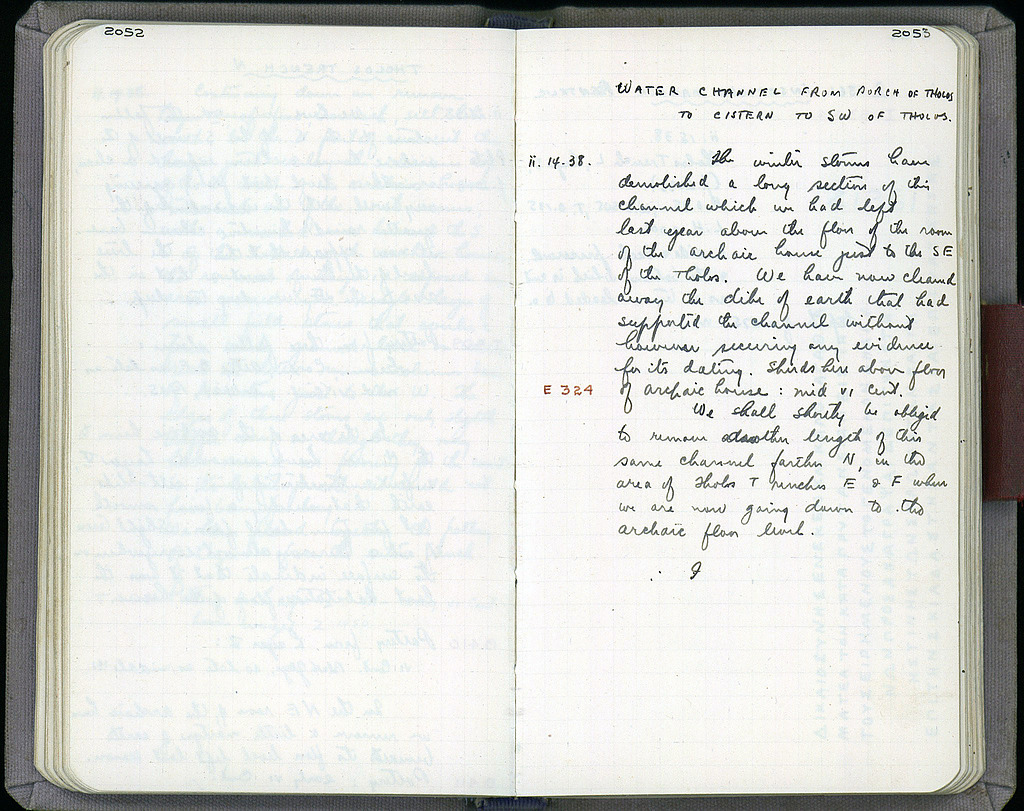 2052
2053
WATER CHANNEL FROM PORCH OF THOLOS
TO CISTERN TO SW OF THOLOS.
ii. 14.38. The winter storms have
demolished a long section of this
channel which we had left
last year above the floor of the room
of the archaic house just to the SE
of the Tholos. We have now cleared
away the dike of earth that had
supported the channel without
however securing any evidence
for its dating. Sherds here above floor
E 324 of archaic house : mid VI cent.
We shall shortly be obliged
to remove another length of this
same channel farther N, in the
area of Tholos Trenches E & F where
we are now going down to the
archaic floor level.